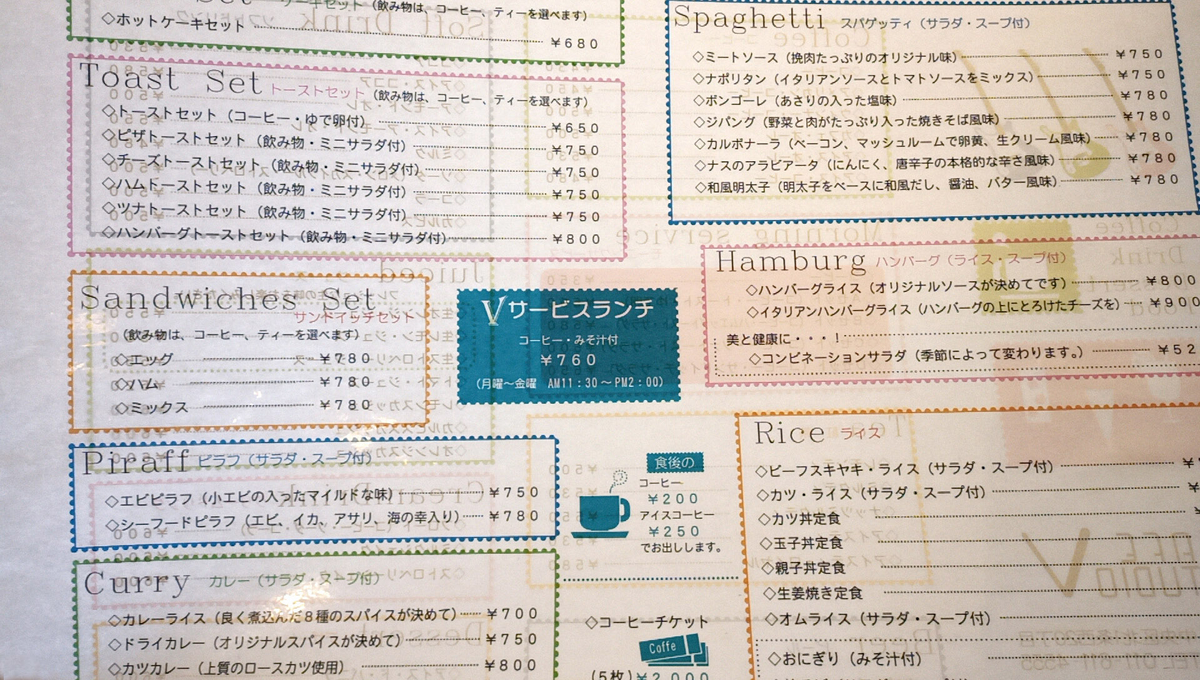 Set ケーキセット（飲み物は、コーヒー、ティーを選べます）
◇ホットケーキセット ¥680
Toast Set トーストセット（飲み物は、コーヒー、ティーを選べます）
◇トーストセット（コーヒー・ゆで卵付） ¥650
◇ピザトーストセット（飲み物・ミニサラダ付） ¥750
◇チーズトーストセット（飲み物・ミニサラダ付） ¥750
◇ハムドトーストセット（飲み物・ミニサラダ付） ¥750
◇ツナトーストセット（飲み物・ミニサラダ付） ¥750
◇ハンバーグトーストセット（飲み物・ミニサラダ付） ¥800
Sandwiches Set
サンドイッチセット
（飲み物は、コーヒー、ティーを選べます）
◇エッグ ¥780
◇ハム ¥780
◇ミックス ¥780
Piraff ピラフ（サラダ・スープ付）
◇エビピラフ（小エビの入ったマイルドな味） ¥750
◇シーフードピラフ（エビ、イカ、アサリ、海の幸入り） ¥780
Curry カレー（サラダ・スープ付）
◇カレーライス（良く煮込んだ８種のスパイスが決めて） ¥700
◇ドライカレー（オリジナルスパイスが決めて） ¥750
◇カツカレー（上質のロースカツ使用） ¥800
Vサービスランチ
コーヒー・みそ汁付
¥760
（月曜〜金曜 AM11：30〜PM2：00）
食後の
コーヒー
¥200
アイスコーヒー
¥250
でお出しします。
◇コーヒーチケット
Coffe
（5枚）¥2,000
Spaghetti スパゲッティ（サラダ・スープ付）
◇ミートソース（挽肉たっぷりのオリジナル味） ¥750
◇ナポリタン（イタリアンソースとトマトソースをミックス） ¥750
◇ボンゴーレ（あさりの入った塩味） ¥780
◇ジパング（野菜と肉がたっぷり入った焼きそば風味） ¥780
◇カルボナーラ（ベーコン、マッシュルームで卵黄、生クリーム風味） ¥780
◇ナスのアラビアータ（にんにく、唐辛子の本格的な辛さ風味） ¥780
◇和風明太子（明太子をベースに和風だし、醤油、バター風味） ¥780
Hamburg ハンバーグ（ライス・スープ付）
◇ハンバーグライス（オリジナルソースが決めてです） ¥800
◇イタリアンハンバーグライス（ハンバーグの上にとろけたチーズを） ¥900
美と健康に・・・！
◇コンビネーションサラダ（季節によって変わります。） ¥52
Rice ライス
◇ビーフスキヤキ・ライス（サラダ・スープ付） ¥
◇カツ・ライス（サラダ・スープ付） ¥
◇カツ丼定食
◇玉子丼定食
◇親子丼定食
◇生姜焼き定食
◇オムライス（サラダ・スープ付）
◇おにぎり（みそ汁付）